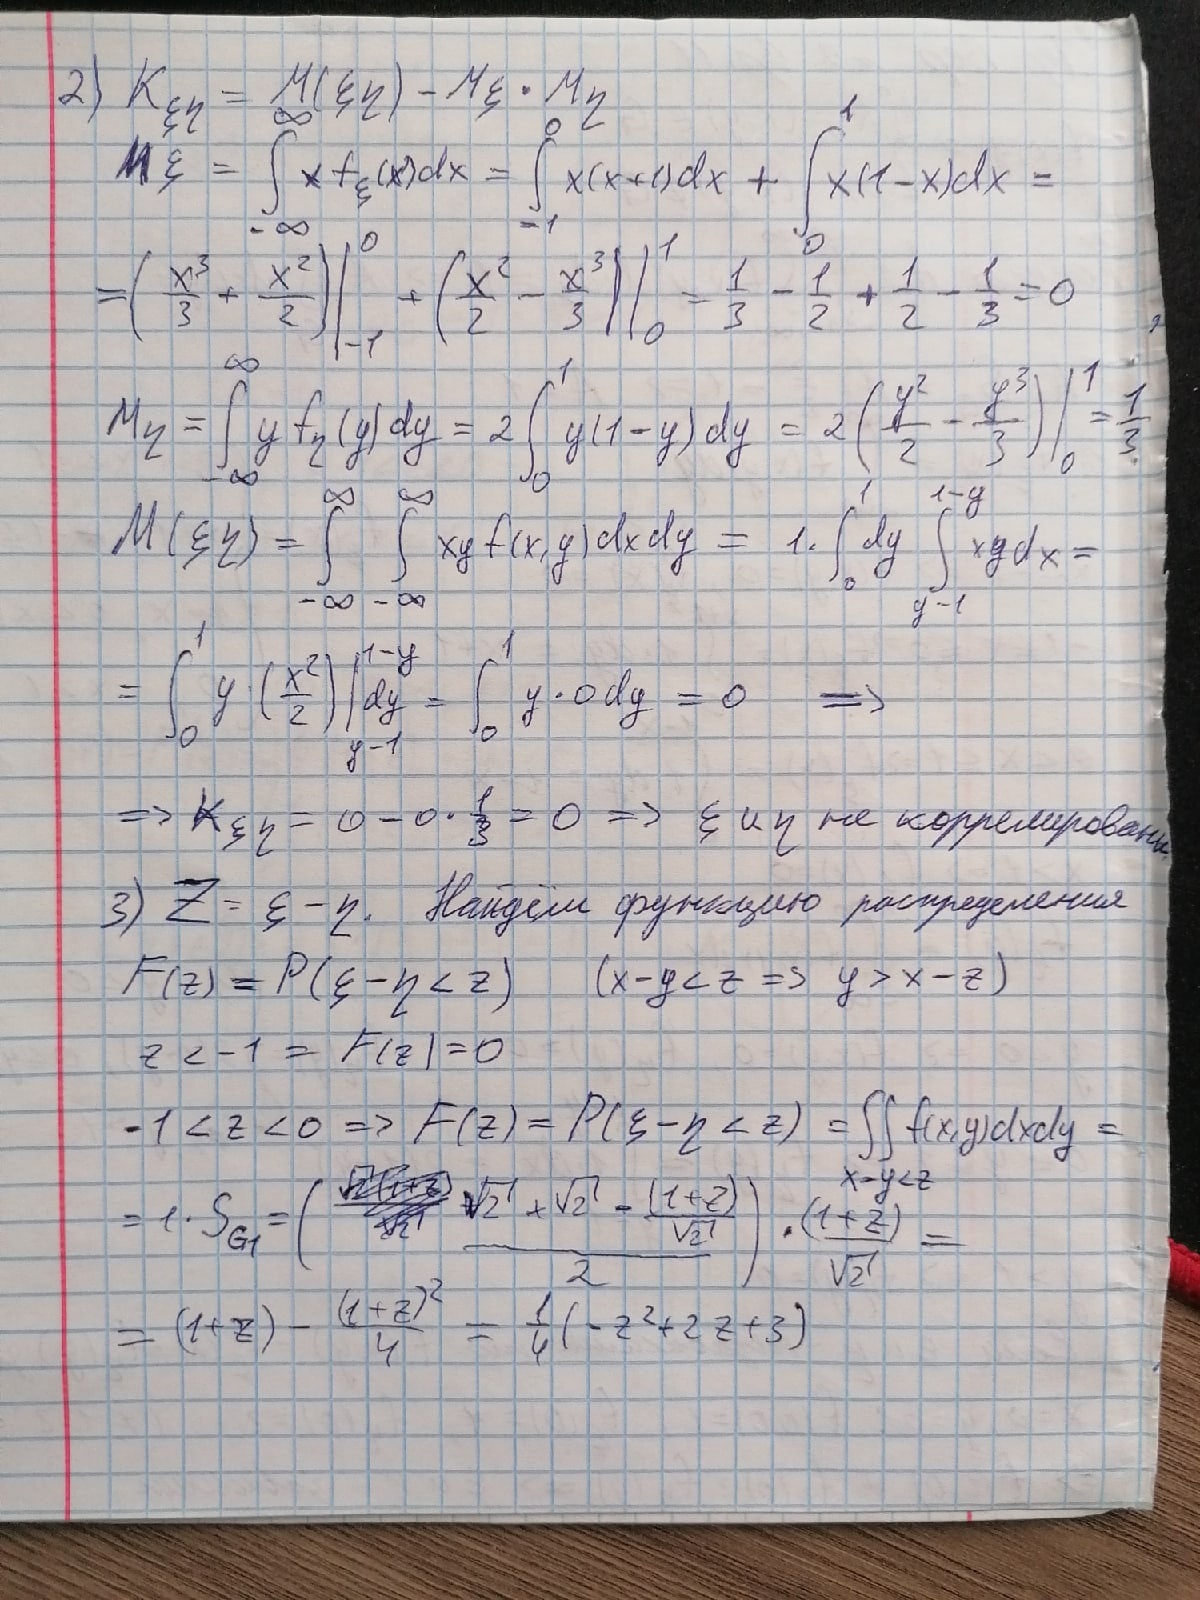 2) K_{ξη} = M(ξη) - Mξ · Mη
Mξ = ∫_{-∞}^{∞} x f_ξ(x)dx = ∫_{-1}^{0} x(x+1)dx + ∫_{0}^{1} x(1-x)dx =
= (x³/3 + x²/2)|_{-1}^{0} + (x²/2 - x³/3)|_{0}^{1} = 1/3 - 1/2 + 1/2 - 1/3 = 0
Mη = ∫_{-∞}^{∞} y f_η(y)dy = 2∫_{0}^{1} y(1-y)dy = 2(y²/2 - y³/3)|_{0}^{1} = 1/3
M(ξη) = ∫_{-∞}^{∞} ∫_{-∞}^{∞} xy f(x,y)dxdy = 1·∫_{0}^{1} dy ∫_{y-1}^{1-y} xydx =
= ∫_{0}^{1} y·(x²/2)|_{y-1}^{1-y} dy = ∫_{0}^{1} y·0dy = 0 =>
=> K_{ξη} = 0 - 0·1/3 = 0 => ξ и η не коррелированы
3) Z = ξ - η. Найдём функцию распределения
F(z) = P(ξ - η < z) (x-y<z => y > x-z)
z < -1 = F(z) = 0
-1 < z < 0 => F(z) = P(ξ - η < z) = ∬_{x-y<z} f(x,y)dxdy =
= 1·S_{G1} = ((√2 + √2 - (1+z)/√2)/2)·(1+z)/√2 =
= (1+z) - (1+z)²/4 = 1/4(-z²+2z+3)